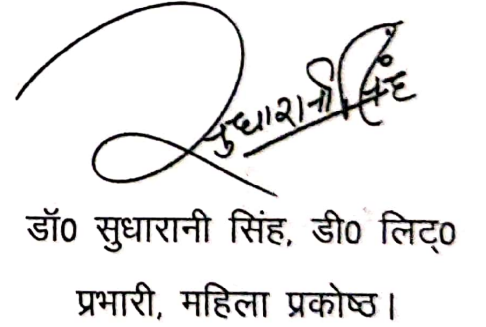 सुधारानी सिंह
डॉ0 सुधारानी सिंह, डी0 लिट्0
प्रभारी, महिला प्रकोष्ठ।